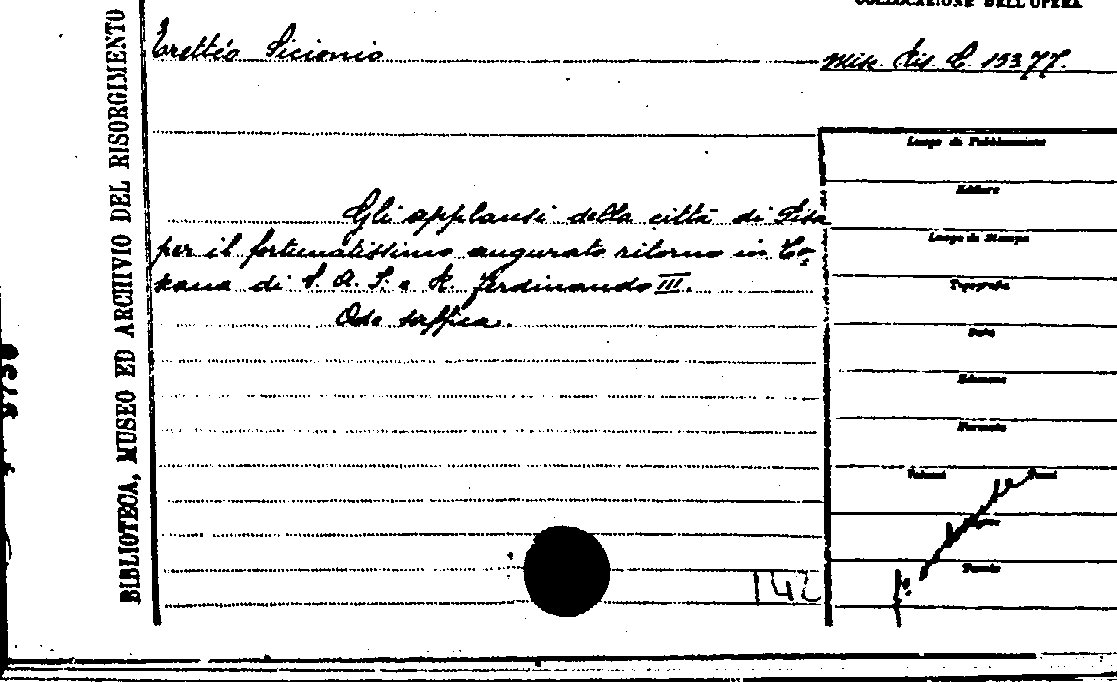 COLLOCAZIONE DELL'OPERA
BIBLIOTECA, MUSEO ED ARCHIVIO DEL RISORGIMENTO
Erettéo Sicionio
Misc. Ris. C. 133.77.
Gli applausi della città di Pisa
per il fortunatissimo augurato ritorno in To-
scana di S. A. I. e R. Ferdinando III.
Ode saffica.
Luogo di Pubblicazione
Editore
Luogo di Stampa
Tipografia
Data
Edizione
Formato
Volumi
142